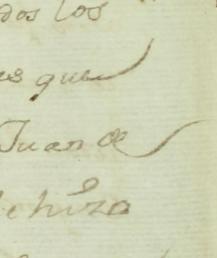 dos los
es que
Juan de
le hizo